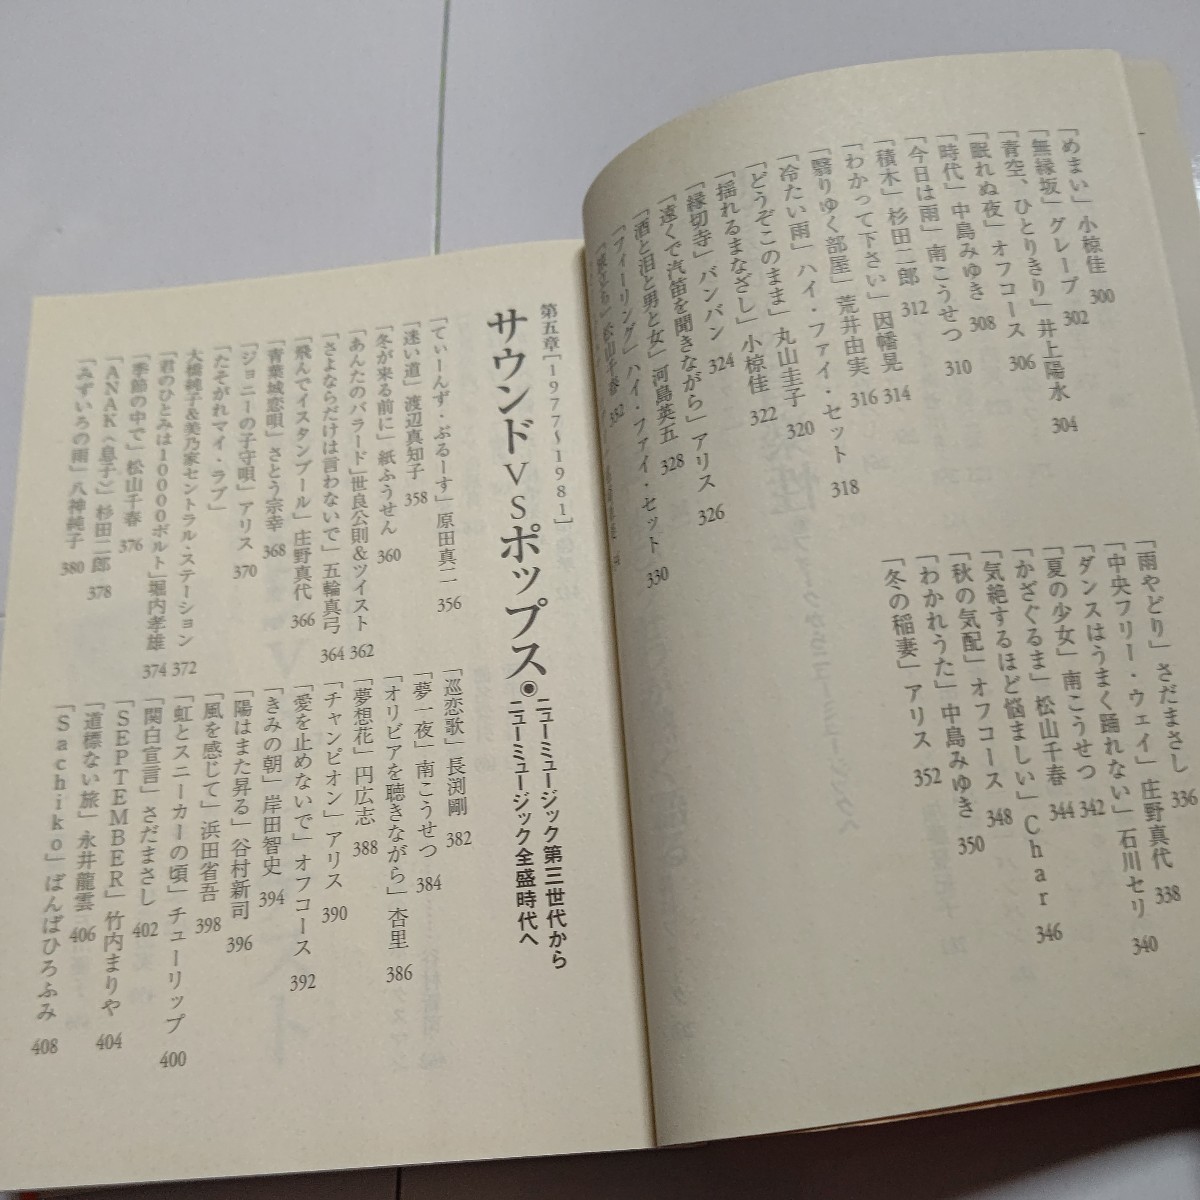 「めまい」小椋佳 300
「無縁坂」グレープ 302
「青空、ひとりきり」井上陽水 304
「眠れぬ夜」オフコース 306
「時代」中島みゆき 308
「今日は雨」南こうせつ 310
「積木」杉田二郎 312
「わかって下さい」因幡晃 314
「翳りゆく部屋」荒井由実 316
「冷たい雨」ハイ・ファイ・セット 318
「どうぞこのまま」丸山圭子 320
「揺れるまなざし」小椋佳 322
「縁切寺」バンバン 324
「遠くで汽笛を聞きながら」アリス 326
「酒と泪と男と女」河島英五 328
「フィーリング」ハイ・ファイ・セット 330
「旅立ち」松山千春 332
「雨やどり」さだまさし 336
「中央フリー・ウェイ」庄野真代 338
「ダンスはうまく踊れない」石川セリ 340
「夏の少女」南こうせつ 342
「かざぐるま」松山千春 344
「気絶するほど悩ましい」Char 346
「秋の気配」オフコース 348
「わかれうた」中島みゆき 350
「冬の稲妻」アリス 352
第五章[1977~1981]
サウンドVSポップス◉ニューミュージック第三世代から
ニューミュージック全盛時代へ
「てぃーんず・ぶるーす」原田真二 356
「迷い道」渡辺真知子 358
「冬が来る前に」紙ふうせん 360
「あんたのバラード」世良公則&ツイスト 362
「さよならだけは言わないで」五輪真弓 364
「飛んでイスタンブール」庄野真代 366
「青葉城恋唄」さとう宗幸 368
「ジョニーの子守唄」アリス 370
「たそがれマイ・ラブ」
大橋純子&美乃家セントラル・ステーション 372
「君のひとみは10000ボルト」堀内孝雄 374
「季節の中で」松山千春 376
「ANAK〈息子〉」杉田二郎 378
「みずいろの雨」八神純子 380
「巡恋歌」長渕剛 382
「夢一夜」南こうせつ 384
「オリビアを聴きながら」杏里 386
「夢想花」円広志 388
「チャンピオン」アリス 390
「愛を止めないで」オフコース 392
「きみの朝」岸田智史 394
「陽はまた昇る」谷村新司 396
「風を感じて」浜田省吾 398
「虹とスニーカーの頃」チューリップ 400
「関白宣言」さだまさし 402
「SEPTEMBER」竹内まりや 404
「道標ない旅」永井龍雲 406
「Sachiko」ばんばひろふみ 408